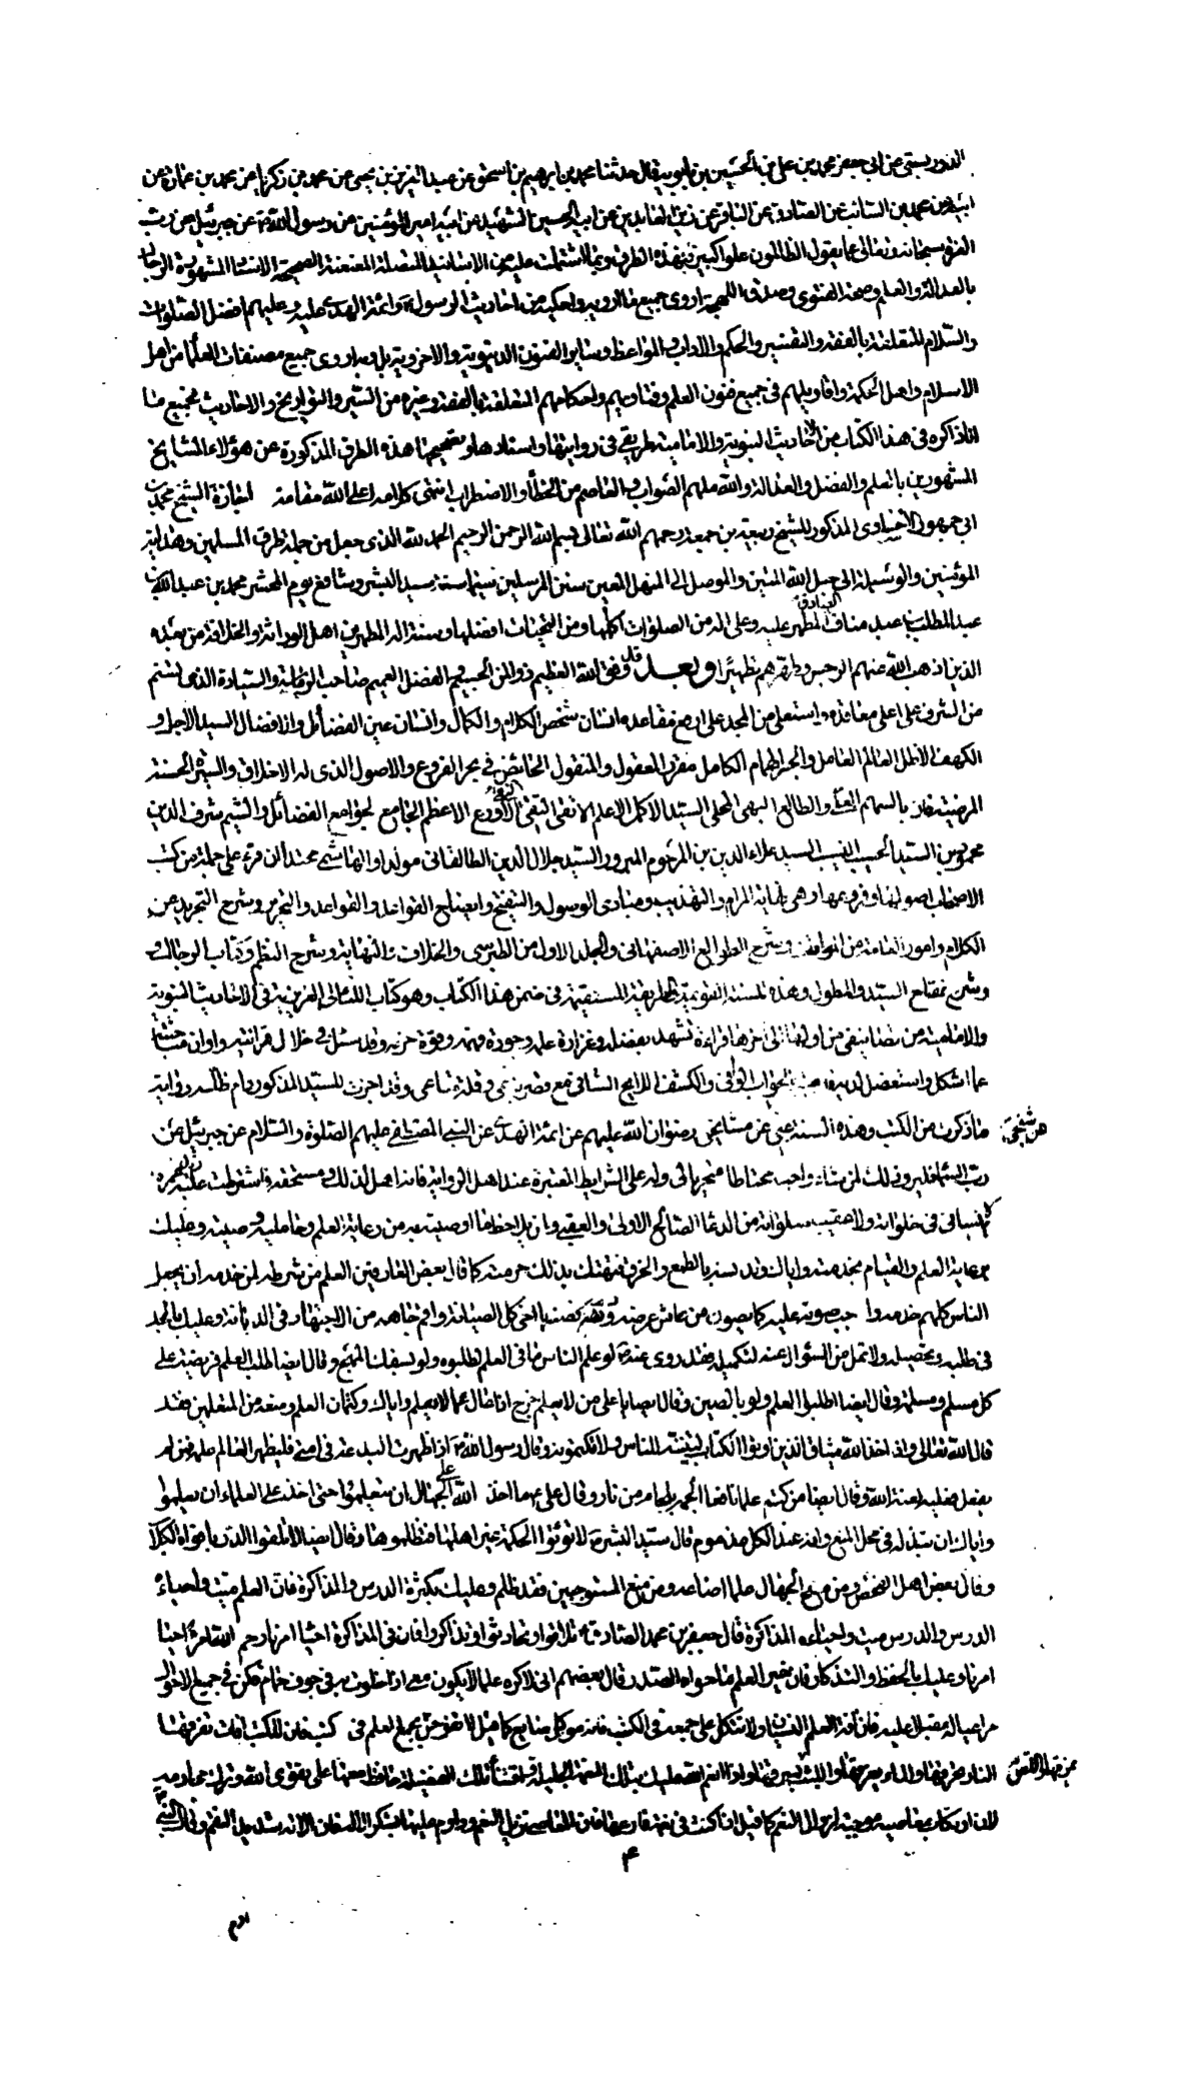 الدوريستي عن ابي جعفر محمد بن علي بن الحسين بن بابويه قال حدثنا محمد بن ابراهيم بن اسحق عن عبد العزيز بن يحيى عن محمد بن زكريا عن محمد بن عمارة عن
ابيه عن محمد بن السائب عن الصادق عن الباقر عن زين العابدين عن ابيه الحسين الشهيد عن ابيه امير المؤمنين عن رسول الله ص عن جبرئيل عن رب
العزة سبحانه وتعالى عما يقول الظالمون علوا كبيرا فبهذه الطرق وبما اشتملت عليه من الاسانيد المتصلة المعنعنة الصحيحة الاسناد المشهورة الرجال
بالعدالة والعلم وصحة الفتوى وصدق اللهجة اروي جميع ما ارويه واحكيه من احاديث الرسول ص وائمة الهدى عليه وعليهم افضل الصلوات
والسلام المتعلقة بالفقه والتفسير والحكم والاداب والمواعظ وساير الفنون الدنيوية والاخروية بل وبه اروي جميع مصنفات العلماء من اهل
الاسلام واهل الحكمة واقاويلهم في جميع فنون العلم وفتاويهم واحكامهم المتعلقة بالفقه وغيره من السير والتواريخ والاحاديث فجميع ما
انا ذاكره في هذا الكتاب من الاحاديث النبوية والامامية طريقي في روايتها واسنادها وتصحيحها هذه الطرق المذكورة عن هؤلاء المشايخ
المشهورين بالعلم والفضل والعدالة والله ملهم الصواب والعاصم من الخطأ والاضطراب انتهى كلامه اعلى الله مقامه اجازة الشيخ محمد بن
ابي جمهور الاحسائي المذكور للشيخ ربيعة بن جمعة رحمهم الله تعالى بسم الله الرحمن الرحيم الحمد لله الذي جعل من جملة طرق المسلمين وهداية
المؤمنين والوسيلة الى حبل الله المتين والموصل الى المنهل المعين سنن المرسلين سيما سنة سيد البشر وشافع يوم المحشر محمد بن عبد الله بن
عبد المطلب بن عبد مناف المطهر عليه وعلى اله من الصلوات اكملها ومن التحيات افضلها وسنة اله المطهرين اهل الوراثة والخلافة من بعده
الذين اذهب الله عنهم الرجس وطهرهم تطهيرا وبعد قد وفق الله العظيم ذو المن الجسيم والفضل العميم صاحب الرياسة والسيادة الذي تسنم
من الشرف على اعلى معاقده واستعلى من المجد على ارفع مقاعده انسان شخص الكلام والكمال وانسان عين الفضائل والافضال السيد الاجل و
الكهف الاظل العالم العامل والحبر الهمام الكامل مقرر المعقول والمنقول الخائض في بحر الفروع والاصول الذي له الاخلاق والسير الحسنة
المرضية السيد الاكمل الاعلم الاتقى النقي الاورع الاعظم الجامع لجوامع الفضائل والشيم شرف الدين
محمود بن السيد الحسيب النسيب السيد علاء الدين بن المرحوم المبرور السيد جلال الدين الطالقاني مولدا والهاشمي محتدا ان قرء على جملة من كتب
الاصحاب اصولها وفروعها وهي نهاية المرام والتهذيب ومبادي الوصول والتنقيح وايضاح الفوائد والقواعد والتحرير وشرح التجريد من
الكلام وامور العامة من المواقف وشرح الطوالع الاصفهاني والجلد الاول من الطبرسي والخلاف والنهاية وشرح النظم وكتاب الرجال و
وشرح مفتاح السيد والمطول وهذه السنة القويمة والطريقة المستقيمة في ضمن هذا الكتاب وهو كتاب اللئالي العزيزية في الاحاديث النبوية
والامامية من اولها الى اخرها قراءة تشهد بفضله وغزارة علمه وجودة فهمه وقد سئل في خلال قرائته واوان مباحثته
عما اشكل واستعضل لديه الجواب الوافي والكشف وقد اجزت للسيد المذكور دام ظله روايته
ما ذكرت من الكتب وهذه السنة عني عن مشايخي رضوان الله عليهم عن ائمة الهدى عن النبي المصطفى عليهم الصلوة والسلام عن جبرئيل عن
رب السماء فليرو ذلك لمن شاء واحب محتاطا متحريا لي وله على الشرايط المعتبرة عند اهل الرواية فانه اهل لذلك ومستحقه واشترطت عليه ان
لا ينساني في خلواته ولا عقيب صلواته من الدعاء الصالح في الاولى والعقبى وان يلاحظ ما اوصيته به من رعاية العلم وحامليه وصيته وعليك
برعاية العلم والقيام بخدمته واياك وتدنسه بالطمع والخرق فتهتك بذلك حرمته كما قال بعض العارفين العلم من شرطه لمن خدمه ان يجعل
الناس كلهم خدمه واوجب صونه عليه كما يصون من عاش عرضه ودمه
في طلبه وتحصيله ولا تمل من السؤال عنه لتكميله فقد روي عنه ص لو علم الناس ما في العلم لطلبوه ولو بسفك المهج وقال ايضا طلب العلم فريضة على
كل مسلم ومسلمة وقال ايضا اطلبوا العلم ولو بالصين وقال ايضا ما على من لا يعلم حرج ان يسأل عما لا يعلم واياك وكتمان العلم ومنعه من المتعلمين فقد
قال الله تعالى واذ اخذ الله ميثاق الذين اوتوا الكتاب لتبيننه للناس ولا تكتمونه وقال رسول الله ص اذا ظهرت البدعة في امتي فليظهر العالم علمه فمن لم
يفعل فعليه لعنة الله وقال ايضا من كتم علما نافعا الجم بلجام من نار وقال علي ع ما اخذ الله على الجهال ان يتعلموا حتى اخذ على العلماء ان يعلموا
واياك ان تبتذله في محل المنع فانه عند الكل مذموم قال سيد البشر ص لا تؤتوا الحكمة غير اهلها فتظلموها وقال ايضا لا تلقوا الدر بافواه الكلاب
وقال بعض اهل الفضل ومن منح الجهال علما اضاعه ومن منع المستوجبين فقد ظلم وعليك بكثرة الدرس والمذاكرة فان العلم ميت واحياءه
الدرس والدرس ميت واحياءه المذاكرة قال جعفر بن محمد الصادق ع تلاقوا وتحادثوا وتذاكروا فان في المذاكرة احياء امرنا رحم الله امرءا احيا
امرنا وعليك بالحفظ والتذكار فان خير العلم ما حواه الصدر قال بعضهم اني لاكره علما لا يكون معي اذا خلوت به في جوف حمام فكن في جميع الاحوال
مراعيا له مقبلا عليه فان افة العلم النسيان ولا تتكل على جمعه في الكتب فانه موكل ضايع كما قيل لا تفرحن بجمع العلم في كتب فان للكتب افات تفرقها
النار تحرقها والماء يغرقها واللبث يسرقها واذا انعم الله عليك بتلك النعمة الجليلة فحافظ معها على تقوى الله
كما قيل اذا كنت في نعمة فارعها فان المعاصي تزيل النعم وداوم عليها بشكر الاله فان الاله شديد النقم
عن شيخي